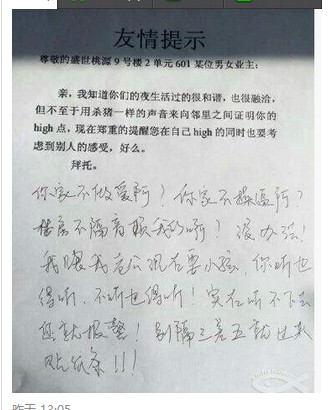 友情提示
尊敬的盛世桃源9号楼2单元601某位男女业主:
亲,我知道你们的夜生活过的很和谐,也很融洽,
但不至于用杀猪一样的声音来向邻里之间证明你的
high点,现在郑重的提醒您在自己high的同时也要考
虑到别人的感受,好么。
拜托。
你家不做爱阿?你家不 阿?
楼房不隔音赖我们啊?没办法!
我跟我老公现在要小孩,你听也
得听,不听也得听!实在听不下去
您就报警!别隔三差五就过来
贴纸条!!!
昨天 13:05